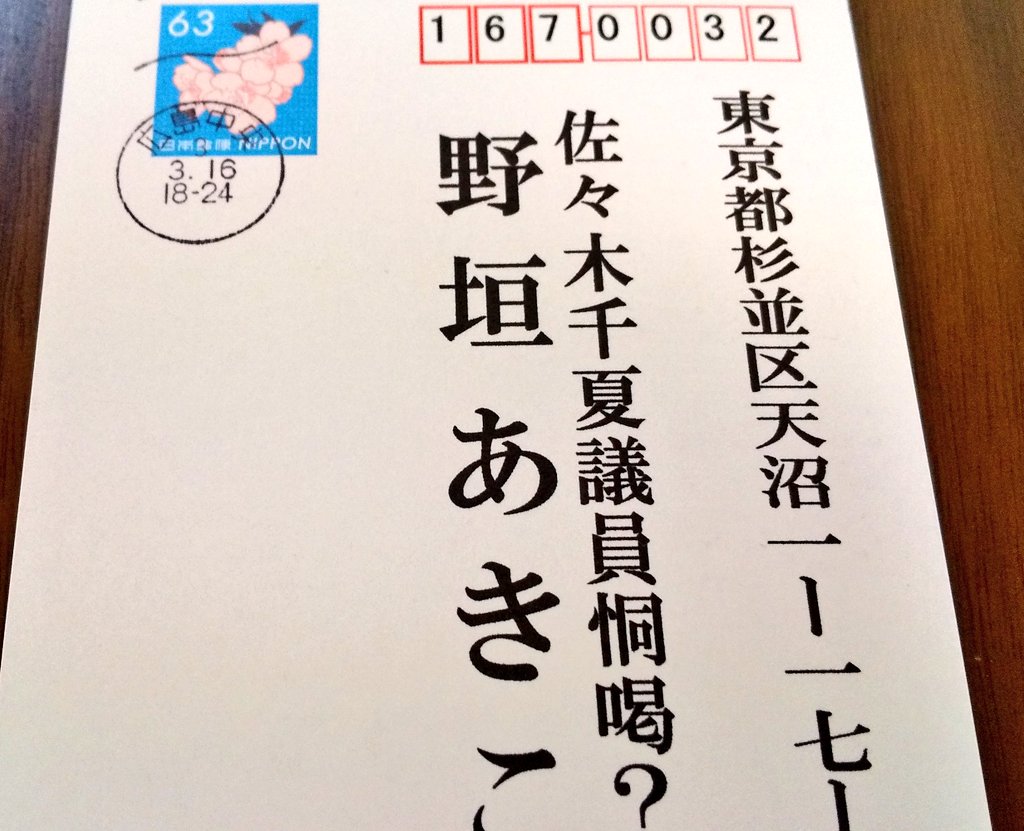 63
日本郵便 NIPPON
広島中央
3. 16
18-24
1670032
東京都杉並区天沼一ー一七ー
佐々木千夏議員恫喝？
野垣あきこ